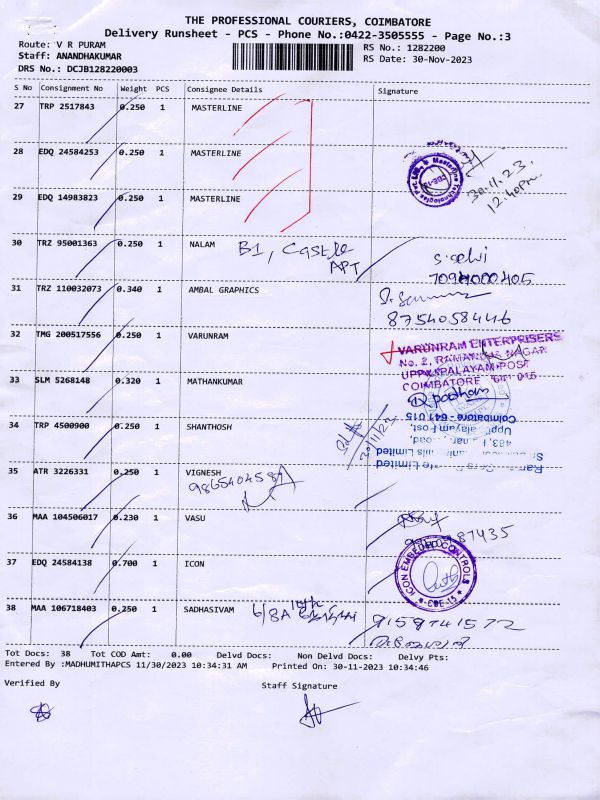 THE PROFESSIONAL COURIERS, COIMBATORE
Delivery Runsheet - PCS - Phone No.:0422-3505555 - Page No.:3
Route: V R PURAM
RS No.: 1282200
Staff: ANANDHAKUMAR
RS Date: 30-Nov-2023
DRS No.: DCJB128220003
S No Consignment No Weight PCS Consignee Details Signature
27 TRP 2517843 0.250 1 MASTERLINE
28 EDQ 24584253 0.250 1 MASTERLINE
30.11.23,
12.40pm
29 EDQ 14983823 0.250 1 MASTERLINE
30 TRZ 95001363 0.250 1 NALAM B1, Castle
APT
S. Selvi
7094000405
31 TRZ 110032073 0.340 1 AMBAL GRAPHICS
8754058446
32 TMG 200517556 0.250 1 VARUNRAM
VARUNRAM ENTERPRISERS
No. 2, RAMANUJA NAGAR
UPPILIPALAYAM POST
COIMBATORE - 641 015
33 SLM 5268148 0.320 1 MATHANKUMAR
34 TRP 4500900 0.250 1 SHANTHOSH
30/11/23
Coimbatore - 641 015
35 ATR 3226331 0.250 1 VIGNESH
36 MAA 104506017 0.230 1 VASU
87435
37 EDQ 24584138 0.700 1 ICON
ICON EMBEDDED CONTROLS
CBE-15
38 MAA 106718403 0.250 1 SADHASIVAM 6/8A
9159741572
Tot Docs: 38 Tot COD Amt: 0.00 Delvd Docs: Non Delvd Docs: Delvy Pts:
Entered By :MADHUMITHAPCS 11/30/2023 10:34:31 AM Printed On: 30-11-2023 10:34:46
Verified By Staff Signature